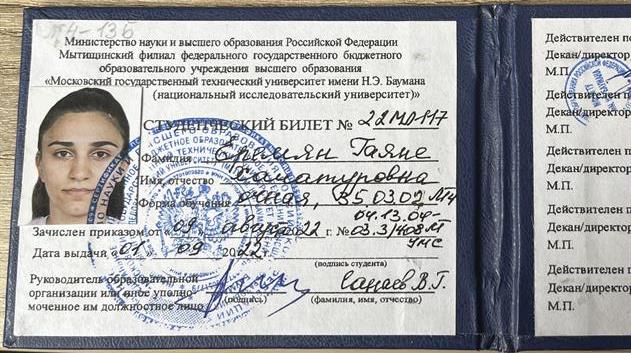 Министерство науки и высшего образования Российской Федерации
Мытищинский филиал федерального государственного бюджетного
образовательного учреждения высшего образования
«Московский государственный технический университет имени Н.Э. Баумана
(национальный исследовательский университет)»
СТУДЕНЧЕСКИЙ БИЛЕТ № 22МЛ117
Фамилия Еримян Гаяне
Имя, отчество Саматуровна
Форма обучения очная, 35.03.02
Зачислен приказом от «09» августа 2022 г. №
Дата выдачи «01» 09 2022
(подпись студента)
Руководитель образовательной
организации или иное уполно-
моченное им должностное лицо
(подпись)
Санаев В.Г.
(фамилия, имя, отчество)
Действителен по
Декан/директор
М.П.
Действителен п
Декан/директор
М.П.
Действителен п
Декан/директор
М.П.
Действителен п
Декан/директор
М.П.
Действителен п
Декан/директор
М.П.